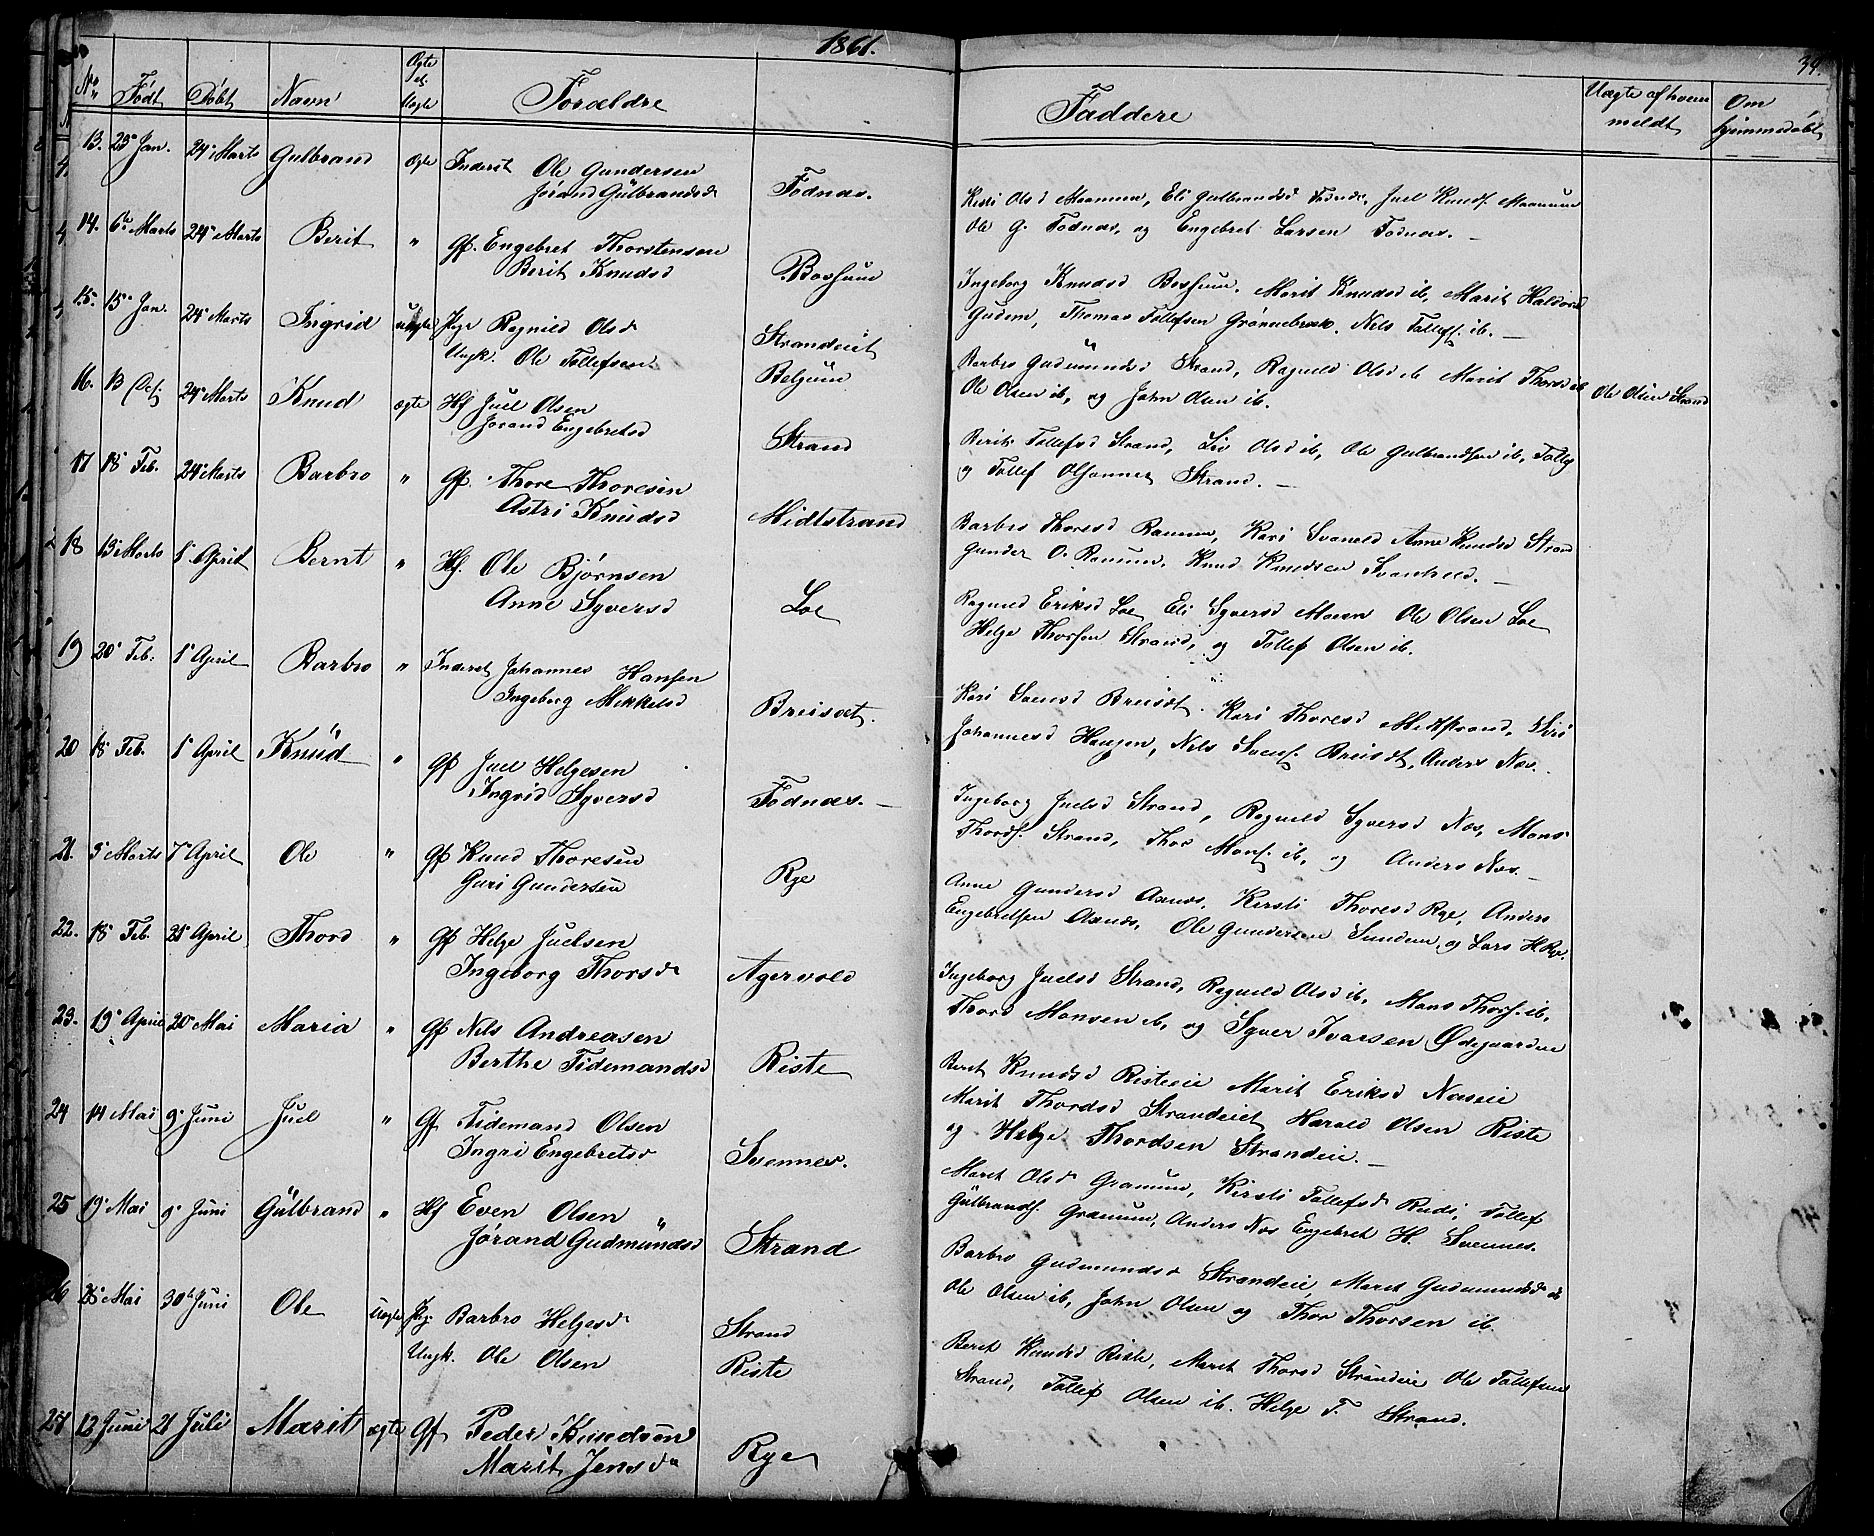 1861.
39.
No Født Døbt Navn Ægte el. Uægte Forældre Faddere Uægte af hvem meldt Om hjemmedøbt
13. 25 Jan. 24 Marts Gulbrand ægte Inderst Ole Gundersen
Jórand Gülbrandsd Fødnæs.
Kisti Olsd Moamoen, Eli Gulbrandsd Fødnæs, Juel Knuds.
Ole G. Fødnæs, og Engebret Larsen Fødnæs. —
14. 6te Marts 24 Marts Berit " Gf. Engebret Thorstensen
Berit Knudsd Bossum
Ingeborg Knudsd Bossum, Marit Knudsd ib, Marit Haldord
Gudem, Thomas Tollefsen Grønnebræk, Nels Tollefs. ib. —
15. 15 Jan. 24 Marts Ingrid uægte Pige Ragnild Olsd Strandeiet
Ungk. Ole Tollefsen Beljum
Barbro Gudmundsd Strand, Ragnild Olsd ib Marit Thorsd ib
Ole Olsen ib, og John Olsen ib. Ole Olsen Strand
16. 13 Oct. 24 Marts Knud ægte Hf Juel Olsen
Jørand Engebretsd Strand
Berit Tollefsd Strand, Liv Olsd ib, Ole Gulbrandsen ib, Tollef
og Tollef Strand. —
17 18 Feb. 24 Marts Barbro " Gf. Thore Thoresen
Astri Knudsd Midtstrand
Barbro Thoresd Ranum, Kari Svanald Anne Knudsd Strand
Gunder O. Ranum, Knud Knudsen Svanheld. —
18 13 Marts 1 April Bernt " Hf. Ole Bjørnsen
Anne Syversd Loe
Ragnild Eriksd Loe Eli Syversd Moen Ole Olsen Loe
Helge Thorsen Strand, og Tollef Olsen ib.
19 20 Feb. 1 April Barbro " Inderst Johannes Hansen
Ingeborg Mikkelsd Breisæt.
Kari Svensd Breisæt. Kari Thoresd Midtstrand, Siri
Johannesd Haugen, Nels Svens. Breisæt, Anders Næs.
20 18 Feb. 1 April Knüd " Gf Juel Helgesen
Ingrid Syversd Fødnæs. —
Ingeborg Juelsd Strand, Ragnild Syversd Næs, Mons
Thords. Strand, Thor Mons. ib, og Anders Næs. —
21. 5 Marts 7 April Ole " Gf Knud Thoresen
Guri Gundersen Rye
Anne Gundersd Aanes, Kersti Thoresd Rye, Anders
Engebretsen Aanes, Ole Gundersen Sundem, og Lars H. Rye.
22. 18 Feb. 21 April Thord " Gf Helge Juelsen
Ingeborg Thorsd Agervold
Ingeborg Juelsd Strand, Ragnild Olsd ib, Mons Thors. ib.
Thord Monsen ib, og Syver Ivarsen Ødegaarden
23. 19 April 20 Mai Maria " Gf Nels Andreasen
Berthe Tidemandsd Riste
Berit Knudsd Risteeie Marit Eriksd Næseie
Marit Thordsd Strandeiet Harald Olsen Riste
og Helge Thordsen Strandeie. —
24 14 Mai 9 Juni Juel " Gf Tidemand Olsen
Ingri Engebretsd Svennes.
Maret Olsd Granum, Kirsti Tollefsd Rudi, Tollef
Gülbrands. Granum, Anders Næs Engebret H. Svennes.
25 19 Mai 9 Juni Gülbrand " Hf Even Olsen
Jørand Gudmündsd Strand
Barbro Gudmundsd Strandeie, Maret Gudmundsd ib
Ole Olsen ib, John Olsen og Thor Thorsen ib.
26 28 Mai 30te Juni Ole Uægte Pig. Barbro Helgesd Strand
Ungk. Ole Olsen Riste
Berit Knudsd Riste, Maret Thorsd Strandeie Ole Tollefsen
Strand, Tollef Olsen ib. Helge T. Strand.
27 12 Juni 21 Juli Marit ægte Gf Peder Knudsen
Marit Jensd Rye